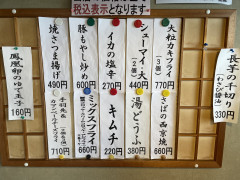 税込表示となります
大粒カキフライ
(3個)
770円
さばの西京焼
660円
シューマイ・大
(2個)
440円
湯どうふ
380円
イカの塩辛
270円
キムチ
220円
豚もやし炒め
600円
ミックスフライ
660円
焼さつま揚げ
490円
手羽先
710円
鳳凰卵のゆで玉子
160円
長芋の千切り
(わさび醤油)
330円